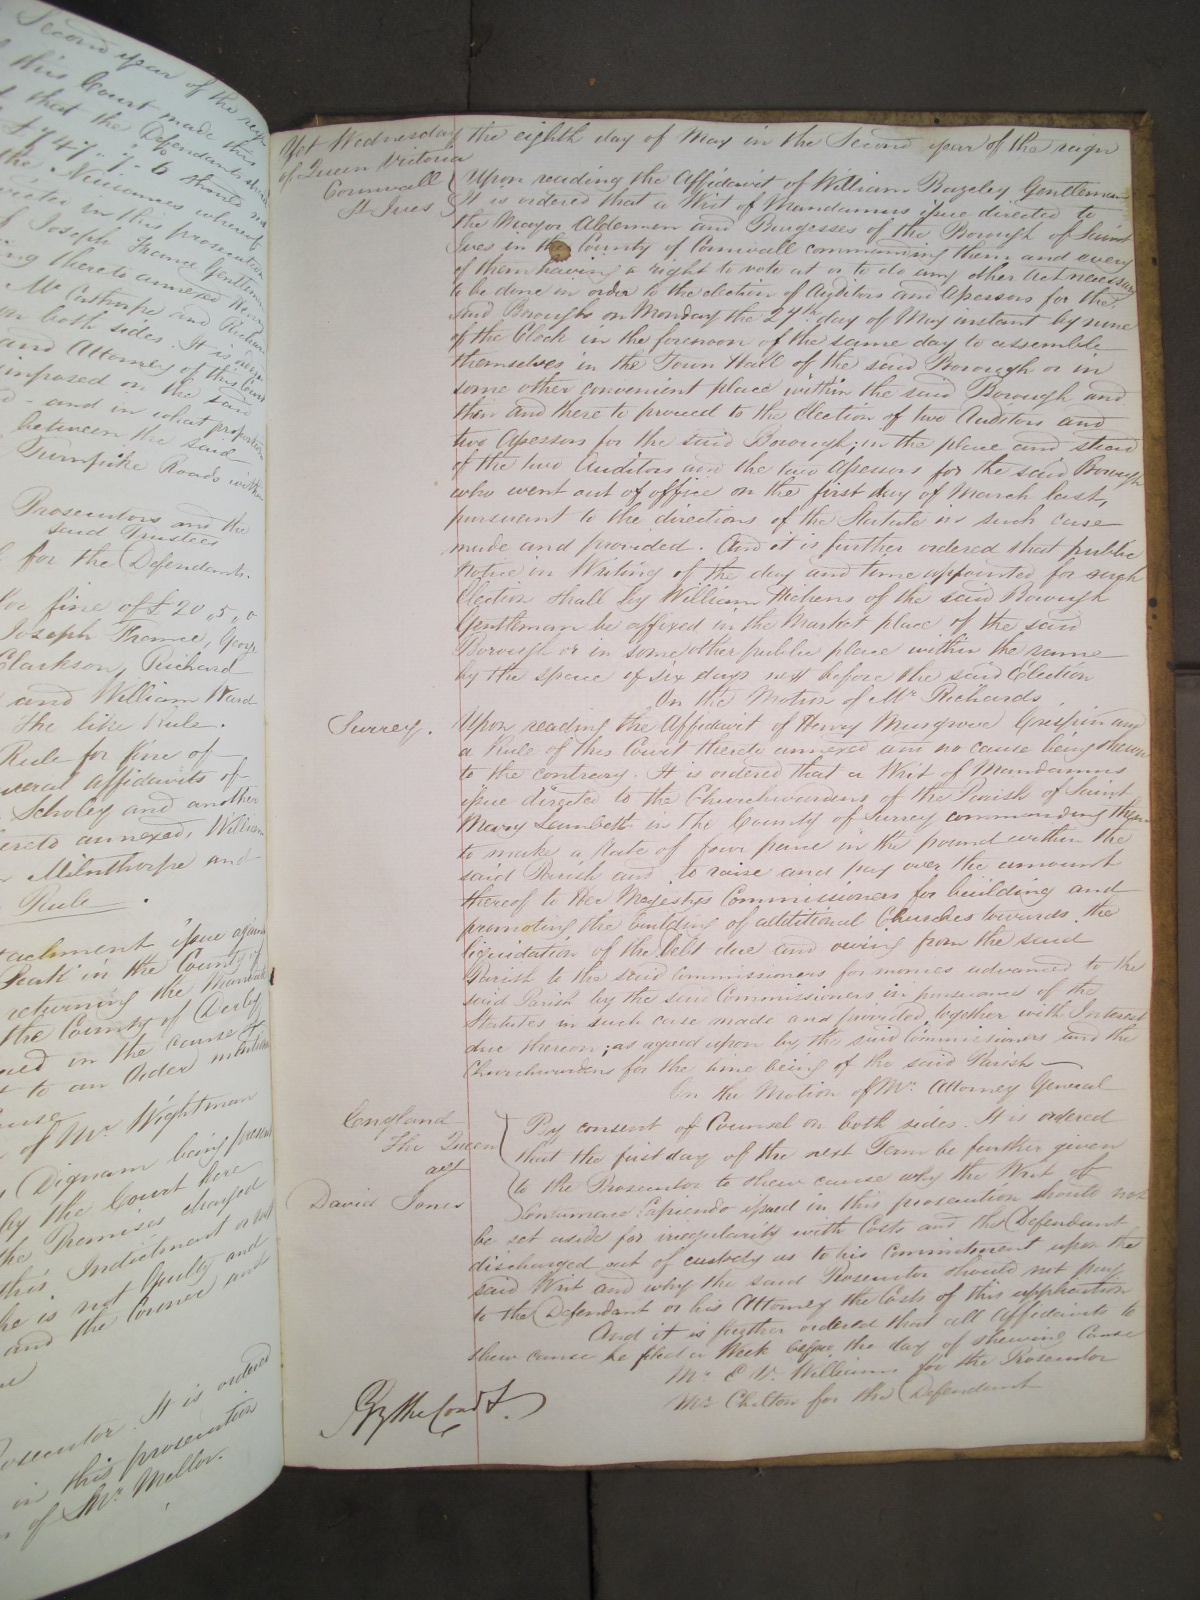 Second year of the reign
this Court made this
that the Defendants
£747.7.6
the Nuisances whereof
in this prosecution
Joseph France Gentleman
thereto annexed
Mr. Casthorpe and
both sides. It is
and Attorney of this Court
imposed on the said
and in what proportion
between the said
Turnpike Roads within
Prosecutors and the
said Trustees
for the Defendants.
for fine of £20,,5,,0
Joseph France, George
Clarkson, Richard
and William Ward
The like Rule.
Rule for fine of
several affidavits of
Scholey and another
hereto annexed, William
Milnthorpe and
Rule.
attachment issue against
Peak in the County of
returning the
the County of Derby
in the course of
to an Order
of Mr. Wightman
Dignam being present
by the Court here
the Premises charged
this Indictment
he is not Guilty and
and the Coroner and
Prosecutor. It is ordered
in this prosecution
of Mr. Mellor.
Yet Wednesday the eighth day of May in the Second year of the reign
of Queen Victoria
Cornwall
St. Ives
Upon reading the Affidavit of William Bazeley Gentleman
It is ordered that a Writ of Mandamus issue directed to
the Mayor Aldermen and Burgesses of the Borough of Saint
Ives in the County of Cornwall commanding them and every
of them having a right to vote at or to do any other Act necessary
to be done in order to the election of Auditors and Assessors for the
said Borough on Monday the 27th day of May instant by nine
of the Clock in the forenoon of the same day to assemble
themselves in the Town Hall of the said Borough or in
some other convenient place within the said Borough and
then and there to proceed to the Election of two Auditors and
two Assessors for the said Borough; in the place and stead
of the two Auditors and the two Assessors for the said Borough
who went out of office on the first day of March last,
pursuant to the directions of the Statute in such case
made and provided. And it is further ordered that public
Notice in Writing of the day and time appointed for such
Election shall by William Hichens of the said Borough
Gentleman be affixed in the Market place of the said
Borough or in some other public place within the same
by the space of six days next before the said Election
On the Motion of Mr. Richards
Surrey.
Upon reading the Affidavit of Henry Musgrove Crespin and
a Rule of this Court thereto annexed and no cause being shewn
to the contrary. It is ordered that a Writ of Mandamus
issue directed to the Churchwardens of the Parish of Saint
Mary Lambeth in the County of Surrey commanding them
to make a Rate of four pence in the pound within the
said Parish and to raise and pay over the amount
thereof to Her Majesty's Commissioners for building and
promoting the building of additional Churches towards the
liquidation of the debt due and owing from the said
Parish to the said Commissioners for monies advanced to the
said Parish by the said Commissioners in pursuance of the
Statutes in such case made and provided, together with Interest
due thereon; as agreed upon by the said Commissioners and the
Churchwardens for the time being of the said Parish
On the Motion of Mr. Attorney General
England
The Queen
agt
David Jones
By consent of Counsel on both sides. It is ordered
that the first day of the next Term be further given
to the Prosecutor to shew cause why the Writ of
Contumace Capiendo issued in this prosecution should not
be set aside for irregularity with Costs and the Defendant
discharged out of custody as to his Commitment upon the
said Writ and why the said Prosecutor should not pay
to the Defendant or his Attorney the Costs of this application
And it is further ordered that all Affidavits to
shew cause be filed a Week before the day of shewing Cause
Mr. E. V. Williams for the Prosecutor
Mr. Chilton for the Defendant
By the Court.